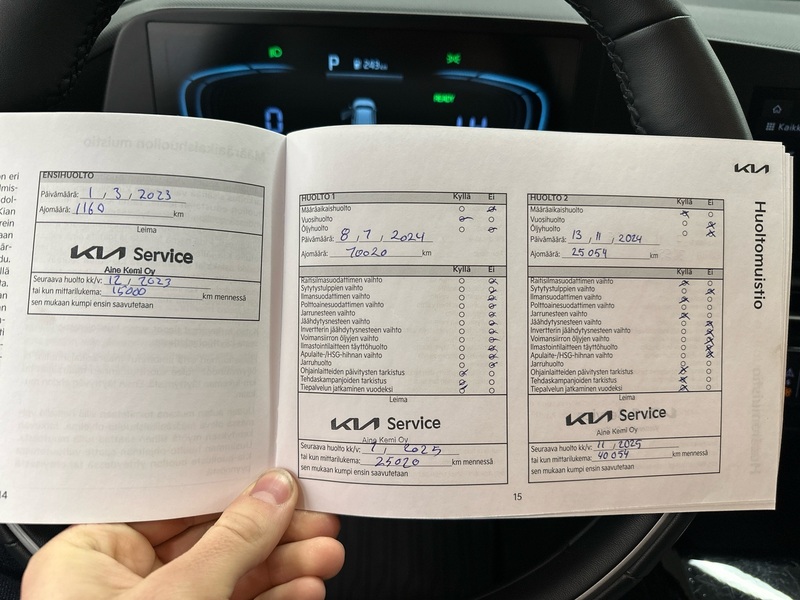 P 243 km
READY
0
ENSIHUOLTO
Päivämäärä: 1 , 3 , 2023
Ajomäärä: 1160 km
Leima
KIA Service
Aine Kemi Oy
Seuraava huolto kk/v: 12 , 2023
tai kun mittarilukema: 15000 km mennessä
sen mukaan kumpi ensin saavutetaan
14
HUOLTO 1 Kyllä Ei
Määräaikaishuolto
Vuosihuolto
Öljyhuolto
Päivämäärä: 8 , 7 , 2024
Ajomäärä: 10020 km
Kyllä Ei
Raitisilmasuodattimen vaihto
Sytytystulppien vaihto
Ilmansuodattimen vaihto
Polttoainesuodattimen vaihto
Jarrunesteen vaihto
Jäähdytysnesteen vaihto
Invertterin jäähdytysnesteen vaihto
Voimansiirron öljyjen vaihto
Ilmastointilaitteen täyttöhuolto
Apulaite-/HSG-hihnan vaihto
Jarruhuolto
Ohjainlaitteiden päivitysten tarkistus
Tehdaskampanjoiden tarkistus
Tiepalvelun jatkaminen vuodeksi
Leima
KIA Service
Aine Kemi Oy
Seuraava huolto kk/v: 7 , 2025
tai kun mittarilukema: 25020 km mennessä
sen mukaan kumpi ensin saavutetaan
15
HUOLTO 2 Kyllä Ei
Määräaikaishuolto
Vuosihuolto
Öljyhuolto
Päivämäärä: 13 , 11 , 2024
Ajomäärä: 25 054 km
Kyllä Ei
Raitisilmasuodattimen vaihto
Sytytystulppien vaihto
Ilmansuodattimen vaihto
Polttoainesuodattimen vaihto
Jarrunesteen vaihto
Jäähdytysnesteen vaihto
Invertterin jäähdytysnesteen vaihto
Voimansiirron öljyjen vaihto
Ilmastointilaitteen täyttöhuolto
Apulaite-/HSG-hihnan vaihto
Jarruhuolto
Ohjainlaitteiden päivitysten tarkistus
Tehdaskampanjoiden tarkistus
Tiepalvelun jatkaminen vuodeksi
Leima
KIA Service
Aine Kemi Oy
Seuraava huolto kk/v: 11 , 2025
tai kun mittarilukema: 40 054 km mennessä
sen mukaan kumpi ensin saavutetaan
KIA
Huoltomuistio